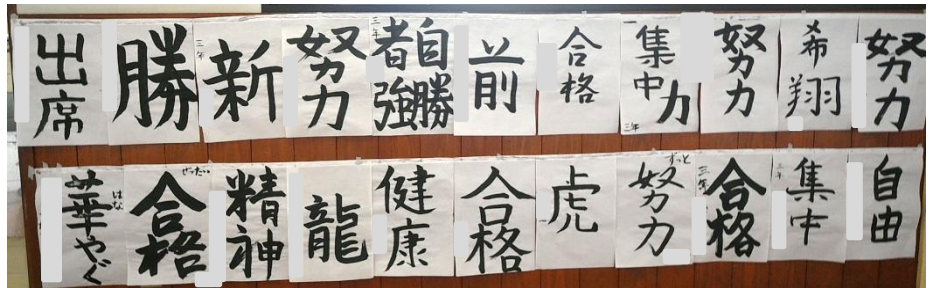 出席
勝
三年
新
努力
三年
自勝
者強
前
合格
集中力
三年
努力
希翔
努力
はな
華やぐ
ぜったい
合格
精神
龍
健康
合格
虎
ずっと
努力
三年
合格
集中
自由